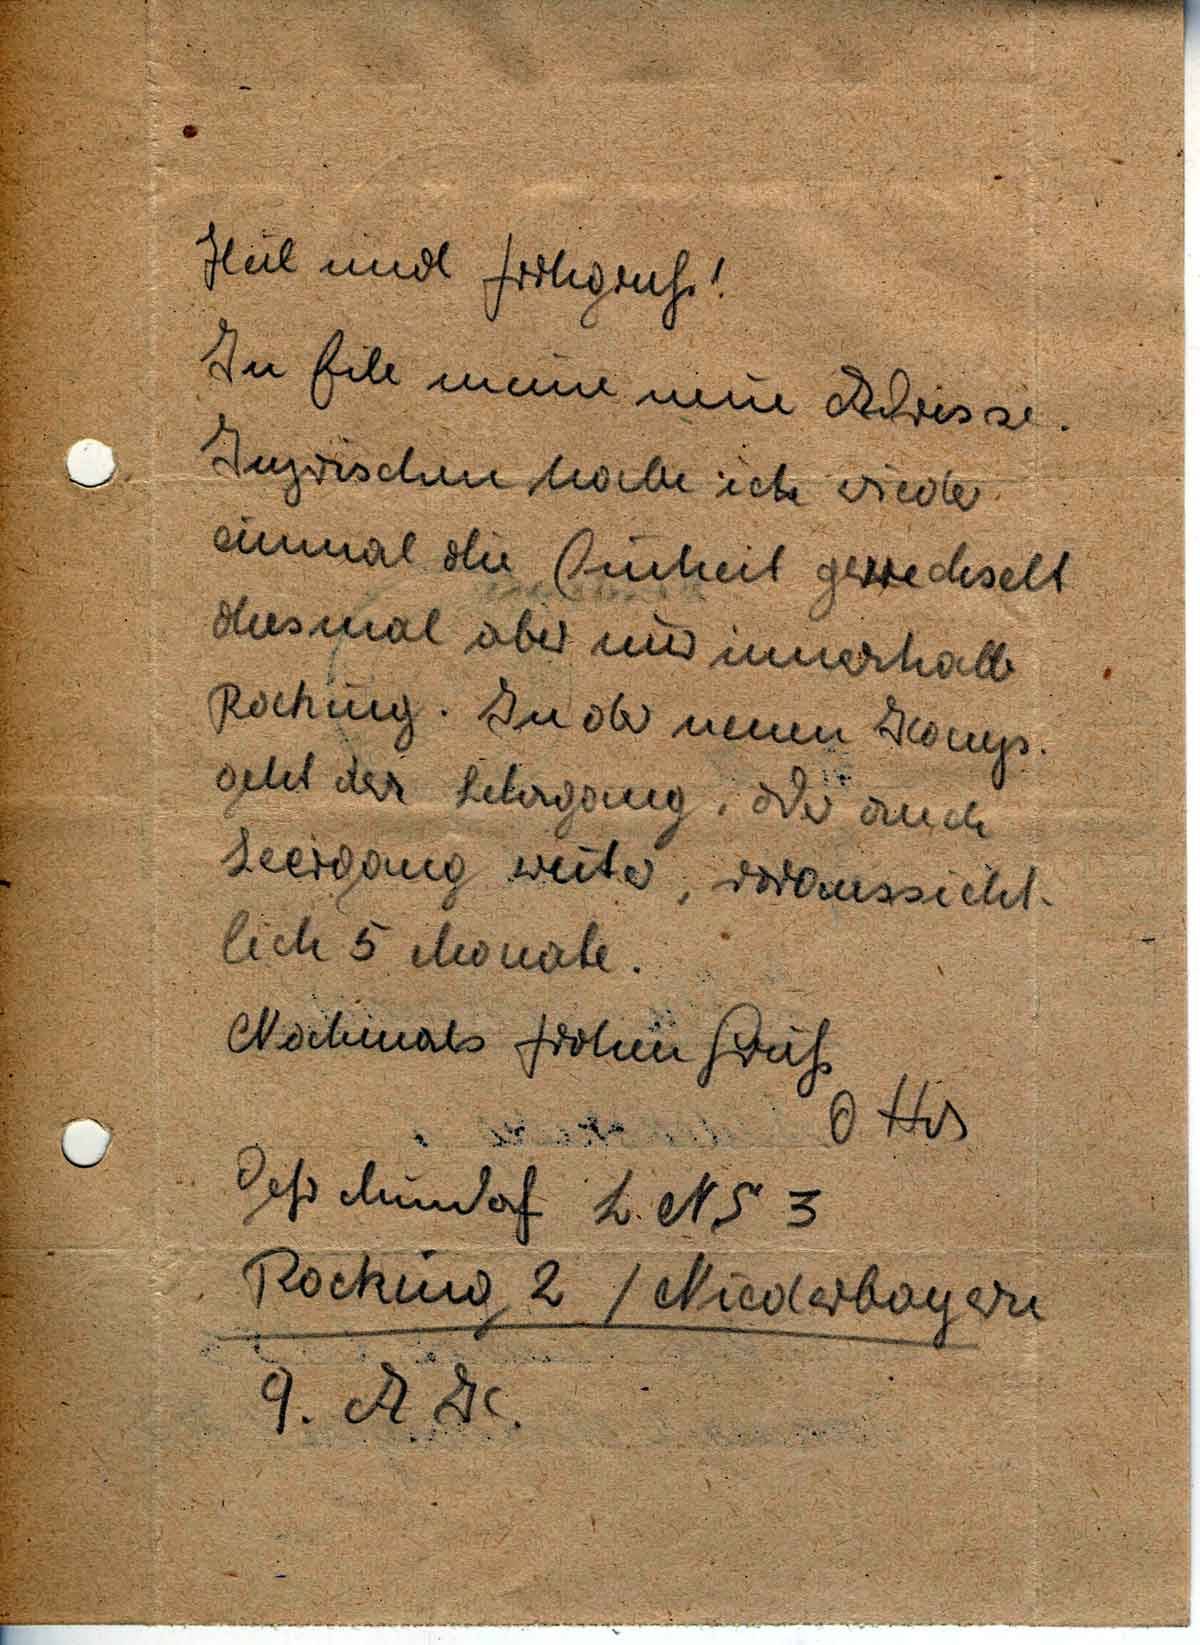 Heil und frohgruß!
In Eile meine neue Adresse.
Inzwischen habe ich wieder
einmal die Einheit gewechselt
diesmal aber nur innerhalb
Pocking. In der neuen Komp.
geht der Lehrgang, oder auch
Leergang weiter, voraussicht-
lich 5 Monate.
Nochmals frohen Gruß
Otto
L. NS 3
Pocking 2 / Niederbayern
9. A K.